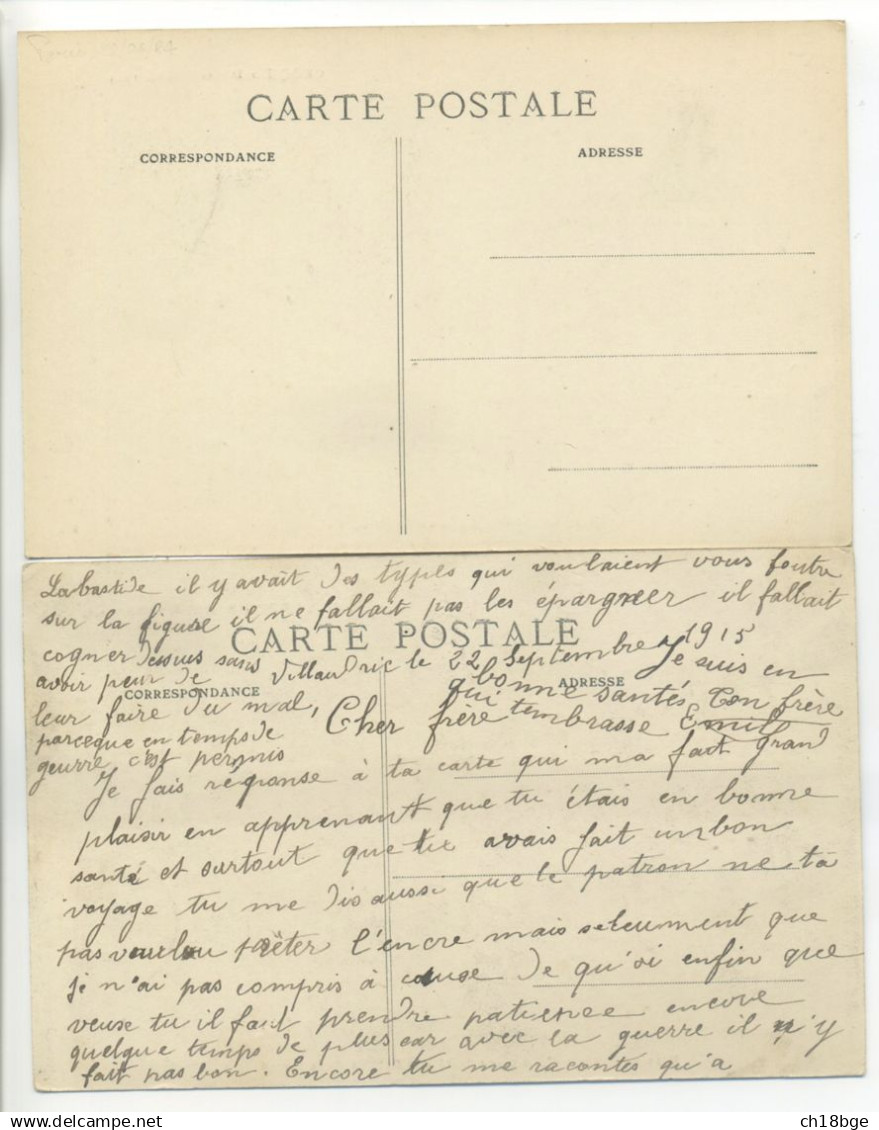 CARTE POSTALE
CORRESPONDANCE
ADRESSE
Labastide il y avait des types qui voulaient vous foutre
sur la figure il ne fallait pas les épargner il fallait
CARTE POSTALE
cogner dessus sans
avoir peur de
leur faire du mal,
parceque en temps de
geurre c'est permis
CORRESPONDANCE
ADRESSE
Villaudric le 22 Septembre 1915
Je suis en
bonne santés Ton frère
qui t'embrasse Emil
Cher frère
Je fais réponse à ta carte qui ma fait grand
plaisir en apprenant que tu étais en bonne
santé et surtout que tu avais fait un bon
voyage tu me dis aussi que le patron ne ta
pas voulou prêter l'encre mais seleument que
je n'ai pas compris à cause de qu'oi enfin que
veuse tu il faut prendre patience encore
quelque temps de plus car avec la guerre il n'y
fait pas bon. Encore tu me racontes qu'a
ch18bge